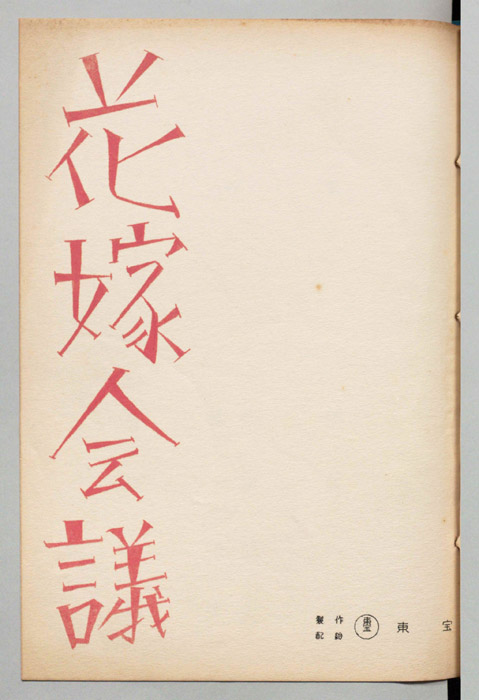 花嫁会議
製作
配給
東宝